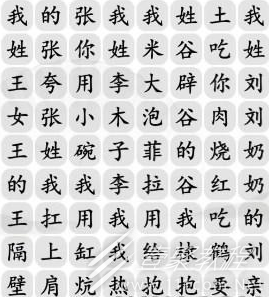 我的张我我姓土我
姓张你姓米谷吃姓
王夸用李大辟你刘
女张小木泡谷肉刘
王姓碗子菲的烧奶
的我我李拉谷红奶
王扛用我用我吃的
隔上缸我给隶鹤刘
壁肩炕热抱抱耍亲